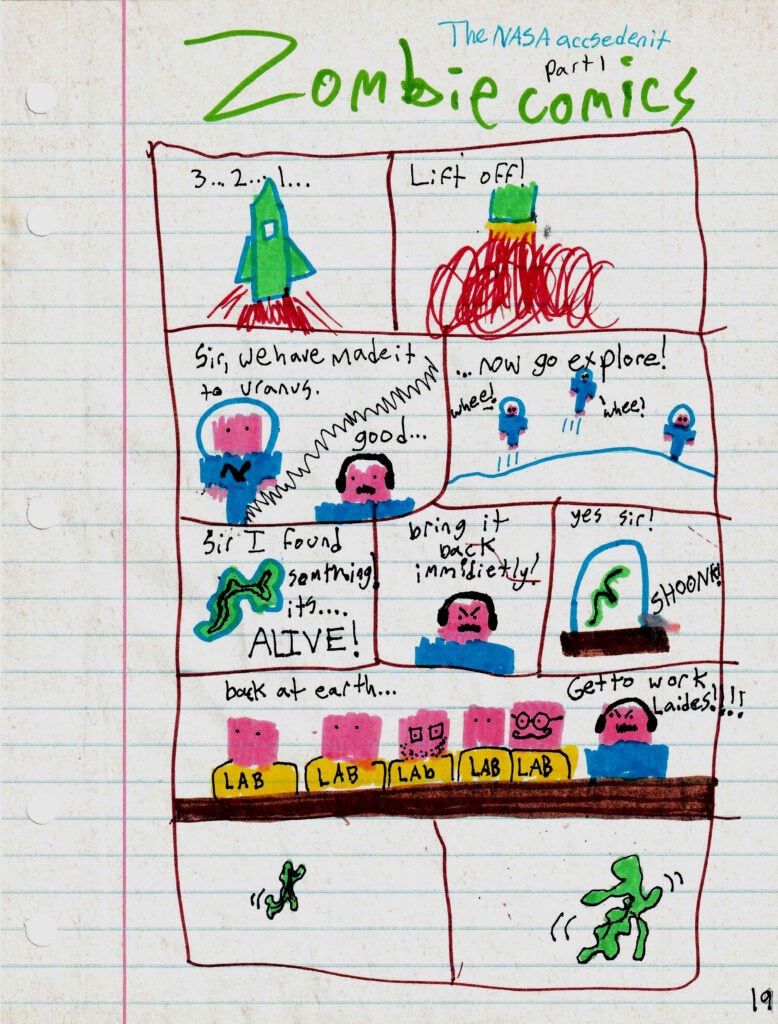 The NASA accsedenit
Part 1
Zombie comics
3... 2... 1...
Lift off!
Sir, we have made it
to uranus.
good...
...now go explore!
whee!
whee!
Sir I found
somthing
its....
ALIVE!
bring it
back
immidietly!
yes sir!
SHOONK!
back at earth...
Get to work
Laides!!!!
LAB
LAB
LAb
LAB
LAB
19